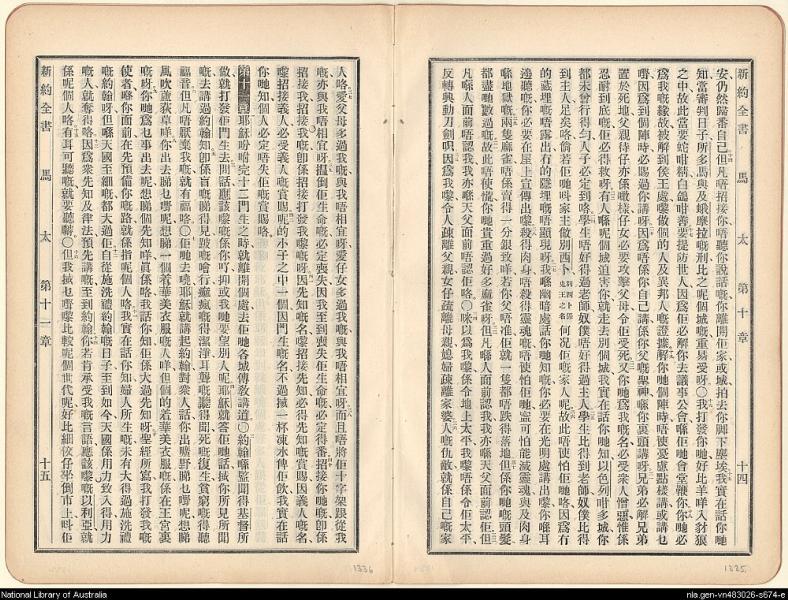 新約全書 馬太 第十章 十四
安仍然歸番自己但凡唔招接你唔聽你說話嘅你離開佢家或城拍去你脚下塵埃我實在話你哋
知當審判日子所多馬與及蛾摩拉嘅刑比之呢個城嘅重易受呀〇我打發你哋好比羊咩入豺狼
之中故此當要蛇咁精白鴿咁善要提防世人因爲佢必解你去議事公會喺佢哋會堂鞭你你哋必
爲我嘅緣故被解到侯王處嚟做個的人及異邦人嘅證據解你哋個陣時唔使憂慮點樣講或講乜
嘢因爲到個陣時必賜過你講呀因爲唔係你自己講係你父嘅聖神喺你裏頭講呀兄弟必解兄弟
置於死地父親待仔亦係噉樣仔女必要攻擊父母令佢受死又你哋爲我嘅名必受衆人憎惡惟係
忍耐到底嘅佢必得救呀有人喺呢個城迫害你就走去別個城我實在話你哋知以色列咁多城你
都未曾行得勻人子必定到咯學生唔好得過老師奴僕唔好得過主人學生比得到老師奴僕比得
到主人足咯倘若佢哋呌家主做別西卜 何况佢嘅家人呢故此唔使怕佢哋咯因爲有
的藏埋嘅唔露出有的隱埋嘅唔顯現呀我喺幽暗處話你哋知嘅你必要在光明處講出嚟你喺耳
邊聽嘅你必要在屋上宣傳出嚟殺得肉身唔殺得靈魂嘅唔使怕佢哋寧可怕能滅靈魂與及肉身
喺地獄嘅兩隻麻雀唔係賣得一分銀致咩若你父唔准佢就一隻都唔跌得落地但係你哋嘅頭髮
都盡哋數過嘅故此唔使慌你哋貴重過好多麻雀呀但凡喺人面前認我我亦喺天父面前認佢但
凡喺人面前唔認我我亦喺天父面前唔認佢咯〇咪以爲我嚟係令地上太平我嚟唔係令佢太平
反轉興動刀劍呮因爲我嚟令人疎離父親女仔疏離母親媳婦疏離家婆人嘅仇敵就係自己嘅家
人咯愛父母多過我嘅與我唔相宜呀愛仔女多過我嘅與我唔相宜呀而且唔將佢十字架跟從我
嘅亦與我唔相宜呀揾倒佢生命嘅必定喪失因我至到喪失佢生命嘅必定得番招接你哋嘅卽係
招接我招接我嘅卽係招接打發我嚟嘅呀因先知嘅名招接先知必得先知嘅賞賜因義人嘅名
嚟招接義人必受義人嘅賞賜呢的小子之中一個因門生嘅名不過搣一杯凍水俾佢飲我實在話
你哋知個人必定唔失佢嘅賞賜咯
第十一章耶穌吩咐完十二門生之時就離開個處去佢哋各城傳敎講道〇約翰喺監聞得基督所
做就打發佢門生去問話應該嚟嘅係你吖抑或我哋要望別人呢耶穌就答佢哋話搣你所見所聞
嘅去講過約翰知卽係盲嘅睇得見跛嘅噲行癩瘋嘅得潔淨耳聾嘅聽得聞死嘅復生貧窮嘅得聽
福音但凡唔厭棄我嘅就有福咯〇佢哋去嘵耶穌就講起約翰對衆人話你出曠野睇乜嘢呢想睇
風吹蘆荻草咩你出去睇乜嘢呢想睇一個着華美衣服嘅人咩但個的着華美衣服嘅係在王宮裏
嘅呀你哋爲乜事出去呢想睇個先知咩眞係咯我話你知佢係大過先知呀聖經所寫我打發我嘅
使者喺你面前在先預備你嘅路就係指呢個人咯我實在話你知婦人所生嘅未有大得過施洗禮
嘅約翰呀但喺天國至細嘅都大過佢自從施洗禮約翰嘅日子至到如今天國係用力致入得用力
嘅人就奪得咯因爲衆先知及律法預先講嘅至到約翰你若肯承受我嘅言語應該嚟嘅以利亞就
係呢個人咯有耳可聽嘅就要聽嚹〇但我搣乜嘢嚟比較呢個世代呢好比細蚊仔坐倒市上呌佢
新約全書 馬太 第十一章 十五
1336
1335
National Library of Australia
nla.gen-vn483026-s674-e